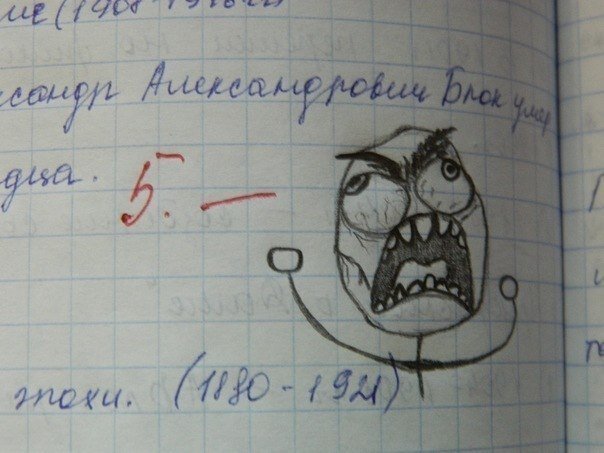 (1908-19
ксандр Александрович Блок умер
дца.
5. —
эпохи. (1880-1921)